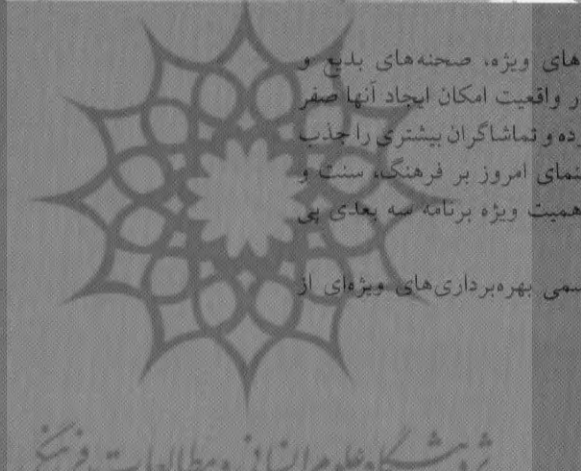 های ویژه، صحنه‌های بدیع و
ر واقعیت امکان ایجاد آنها صفر
رده و تماشاگران بیشتری را جذب
نمای امروز بر فرهنگ، سنت و
همیت ویژه برنامه سه بعدی پی
سمی بهره‌برداری‌های ویژه‌ای از
پژوهشگاه علوم انسانی و مطالعات فرهنگی